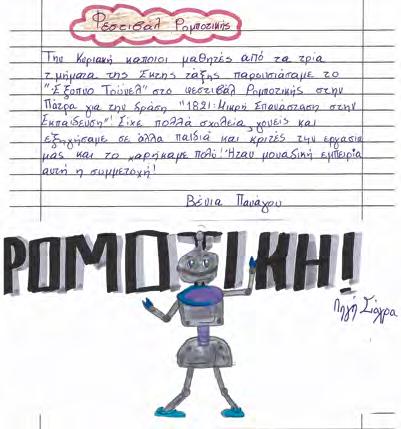 Φεστιβάλ Ρομποτικής
Την Κυριακή κάποιοι μαθητές από τα τρία
τμήματα της Έκτης τάξης παρουσιάσαμε το
"Έξυπνο Τούνελ" στο φεστιβάλ Ρομποτικής στην
Πάτρα για την δράση "1821: Μικρή Επανάσταση στην
Εκπαίδευση"! Είχε πολλά σχολεία, γονείς και
εξηγήσαμε σε άλλα παιδιά και κριτές την εργασία
μας και το χαρήκαμε πολύ! Ήταν μοναδική εμπειρία
αυτή η συμμετοχή!
Βένια Πανάγου
ΡΟΜΠΟΤΙΚΗ!
Πηγή